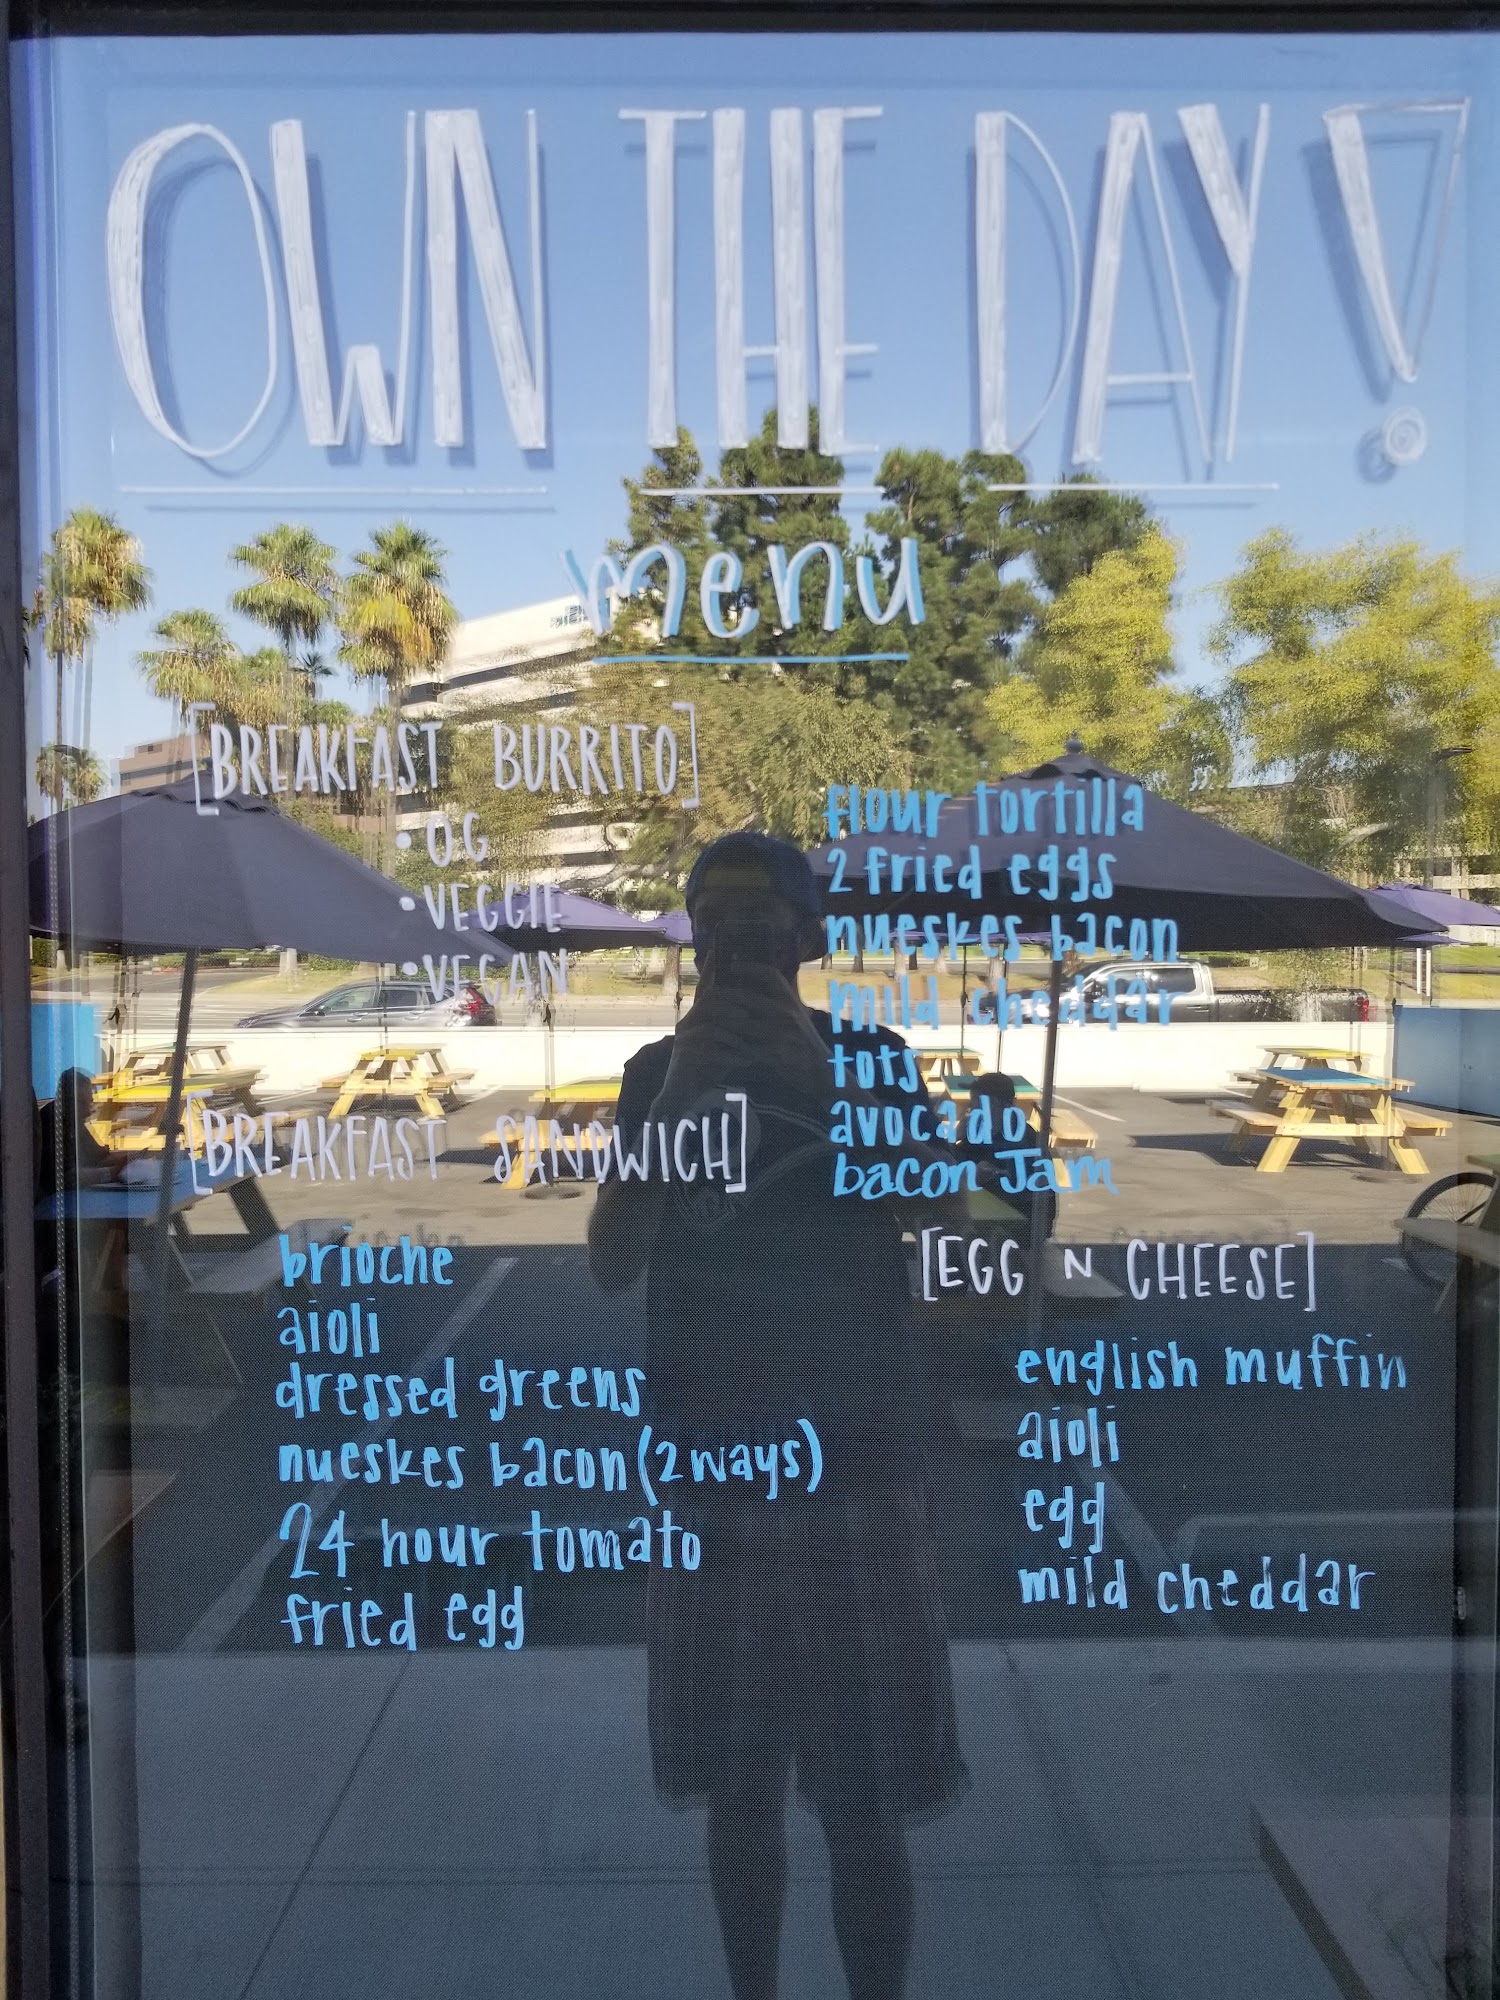 OWN THE DAY!
menu
[BREAKFAST BURRITO]
• OG
• VEGGIE
• VEGAN
flour tortilla
2 fried eggs
nueskes bacon
mild cheddar
tots
avocado
bacon Jam
[BREAKFAST SANDWICH]
brioche
aioli
dressed greens
nueskes bacon (2 ways)
24 hour tomato
fried egg
[EGG N CHEESE]
english muffin
aioli
egg
mild cheddar